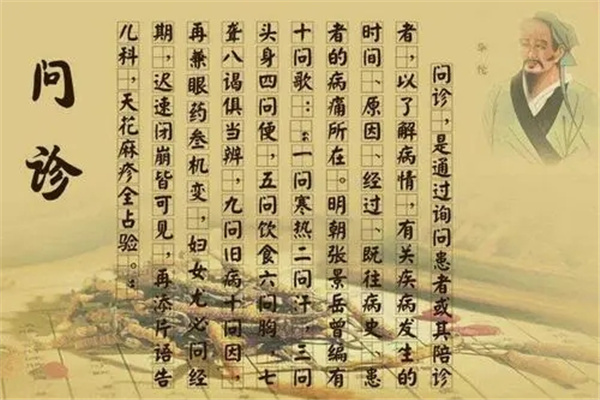 华佗
问诊，是通过询问患者或其陪诊
者，以了解病情，有关疾病发生的
时间、原因、经过、既往病史、患
者的病痛所在。明朝张景岳曾编有
十问歌：：一问寒热二问汗，三问
头身四问便，五问饮食六问胸，七
聋八谒俱当辨，九问旧病十问因，
再兼眼药叁机变，妇女尤必问经
期，迟速闭崩皆可见，再添片语告
儿科，天花麻疹全占验。：
问诊